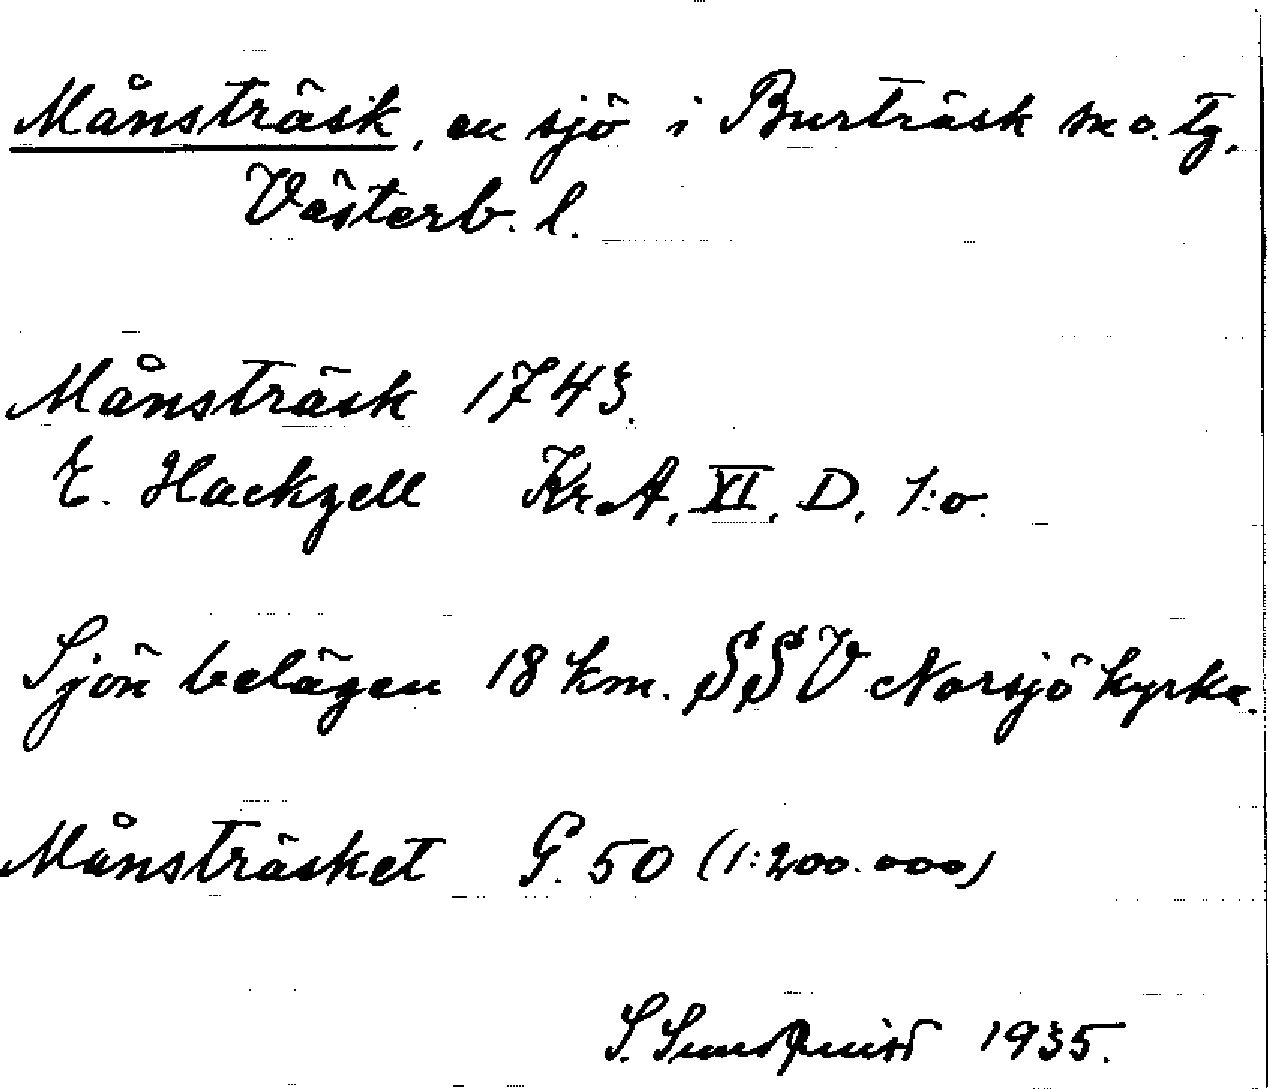 Månsträsk, en sjö i Burträsk sn o. tg.
Västerb. l.
Månsträsk 1743.
E. Hackzell Kr.A. XI. D. 1:o.
Sjön belägen 18 km. SSV Norsjö kyrka.
Månsträsket G. 50 (1:200.000)
S. Sundquist 1935.